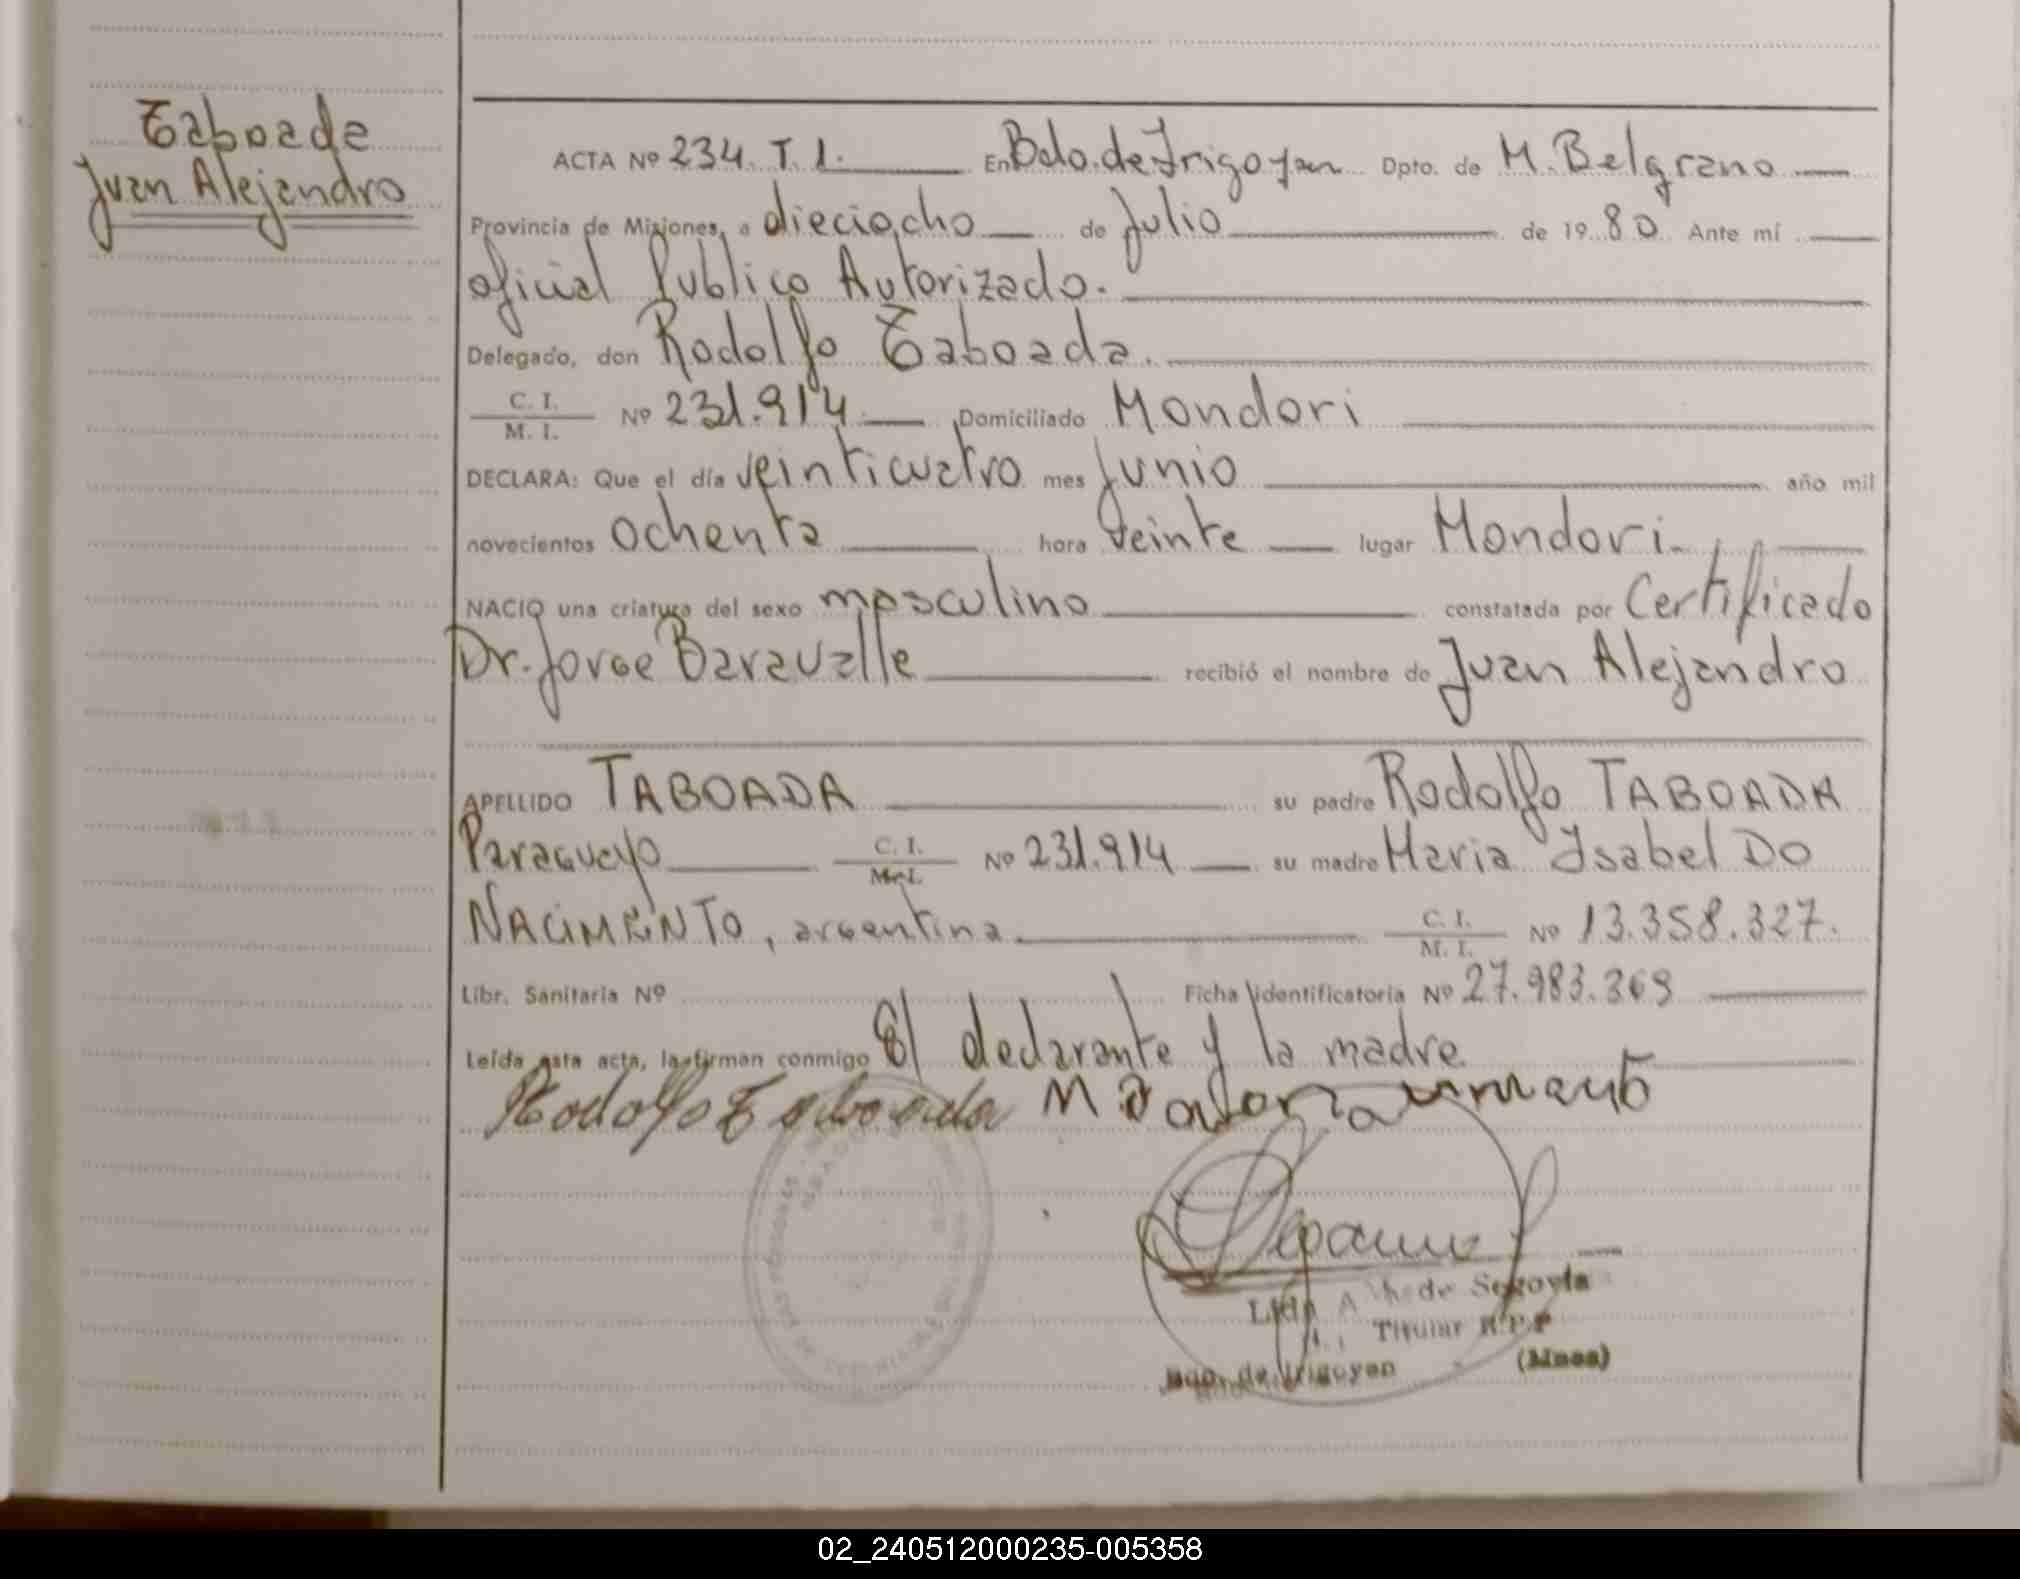 Taboada
Juan Alejandro
ACTA Nº 234. T. 1. En Bdo. de Irigoyen Dpto. de M. Belgrano
Provincia de Misiones, a dieciocho de Julio de 1980 Ante mí
oficial Publico Autorizado.
Delegado, don Rodolfo Taboada.
C. I.
M. I. Nº 231.914 Domiciliado Mondori
DECLARA: Que el día veinticuatro mes Junio año mil
novecientos ochenta hora veinte lugar Mondori
NACIO una criatura del sexo masculino constatada por Certificado
Dr. Jorge Baravalle recibió el nombre de Juan Alejandro
APELLIDO TABOADA su padre Rodolfo TABOADA
Paraguayo C. I.
M. I. Nº 231.914 su madre Maria Isabel DO
NACIMENTO, argentina C. I.
M. I. Nº 13.358.327.
Libr. Sanitaria Nº Ficha identificatoria Nº 27.983.369
Leída esta acta, la firman conmigo El declarante y la madre
Rodolfo Taboada
de Segovia
Titular R.P.P
Bdo. de Irigoyen (Mnes)
02_240512000235-005358